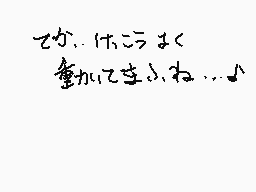 てか、けっこうよく
動いてまふね…♪